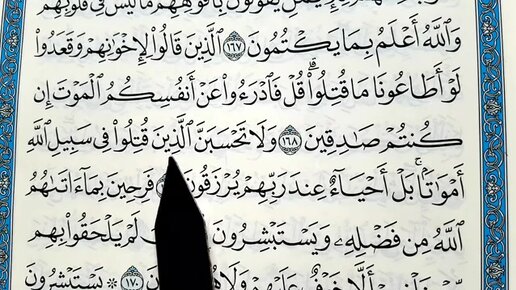 يَقُولُونَ بِأَفْوَٰهِهِم مَّا لَيْسَ فِى قُلُوبِهِمْ
وَٱللَّهُ أَعْلَمُ بِمَا يَكْتُمُونَ ١٦٧ ٱلَّذِينَ قَالُوا۟ لِإِخْوَٰنِهِمْ وَقَعَدُوا۟
لَوْ أَطَاعُونَا مَا قُتِلُوا۟ ۗ قُلْ فَٱدْرَءُوا۟ عَنْ أَنفُسِكُمُ ٱلْمَوْتَ إِن
كُنتُمْ صَٰدِقِينَ ١٦٨ وَلَا تَحْسَبَنَّ ٱلَّذِينَ قُتِلُوا۟ فِى سَبِيلِ ٱللَّهِ
أَمْوَٰتًۢا ۚ بَلْ أَحْيَآءٌ عِندَ رَبِّهِمْ يُرْزَقُونَ فَرِحِينَ بِمَآ ءَاتَىٰهُمُ
ٱللَّهُ مِن فَضْلِهِۦ وَيَسْتَبْشِرُونَ لَمْ يَلْحَقُوا۟ بِهِم
أَلَّا خَوْفٌ عَلَيْهِمْ وَلَا ١٧٠ ۞ يَسْتَبْشِرُونَ